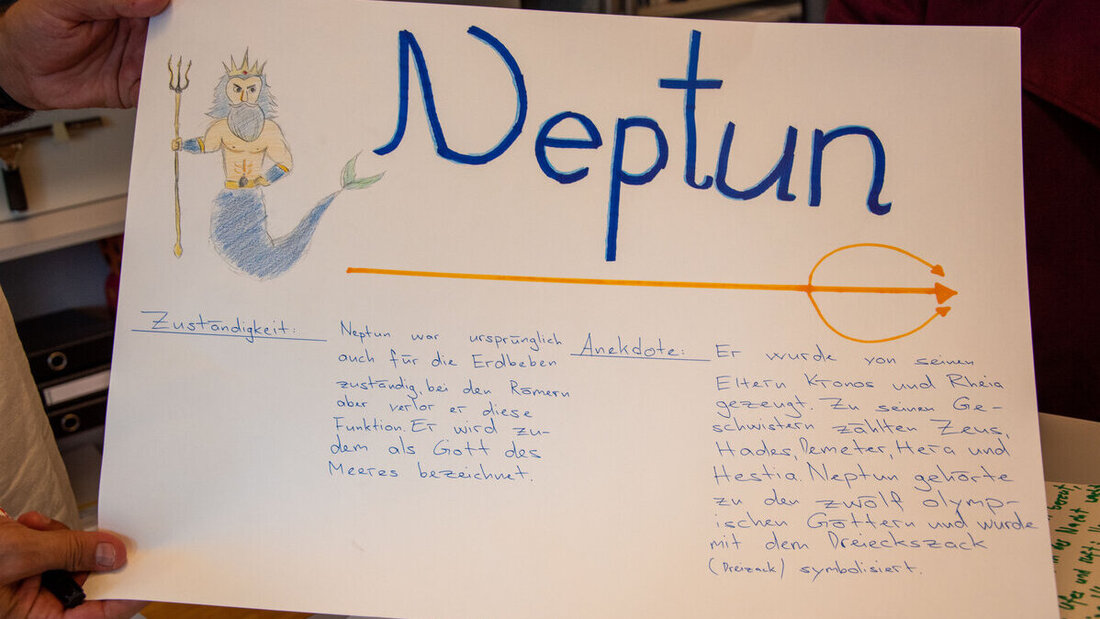 Neptun
Zuständigkeit:
Neptun war ursprünglich
auch für die Erdbeben
zuständig, bei den Römern
aber verlor er diese
Funktion. Er wird zu-
dem als Gott des
Meeres bezeichnet.
Anekdote:
Er wurde von seinen
Eltern Kronos und Rheia
gezeugt. Zu seinen Ge-
schwistern zählten Zeus,
Hades, Demeter, Hera und
Hestia. Neptun gehörte
zu den zwölf olymp-
ischen Göttern und wurde
mit dem Dreieckszack
(Dreizack) symbolisiert.